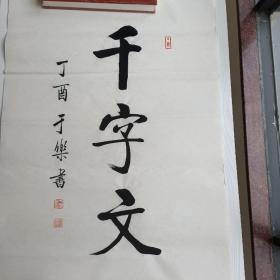 千字文
丁酉于樂書